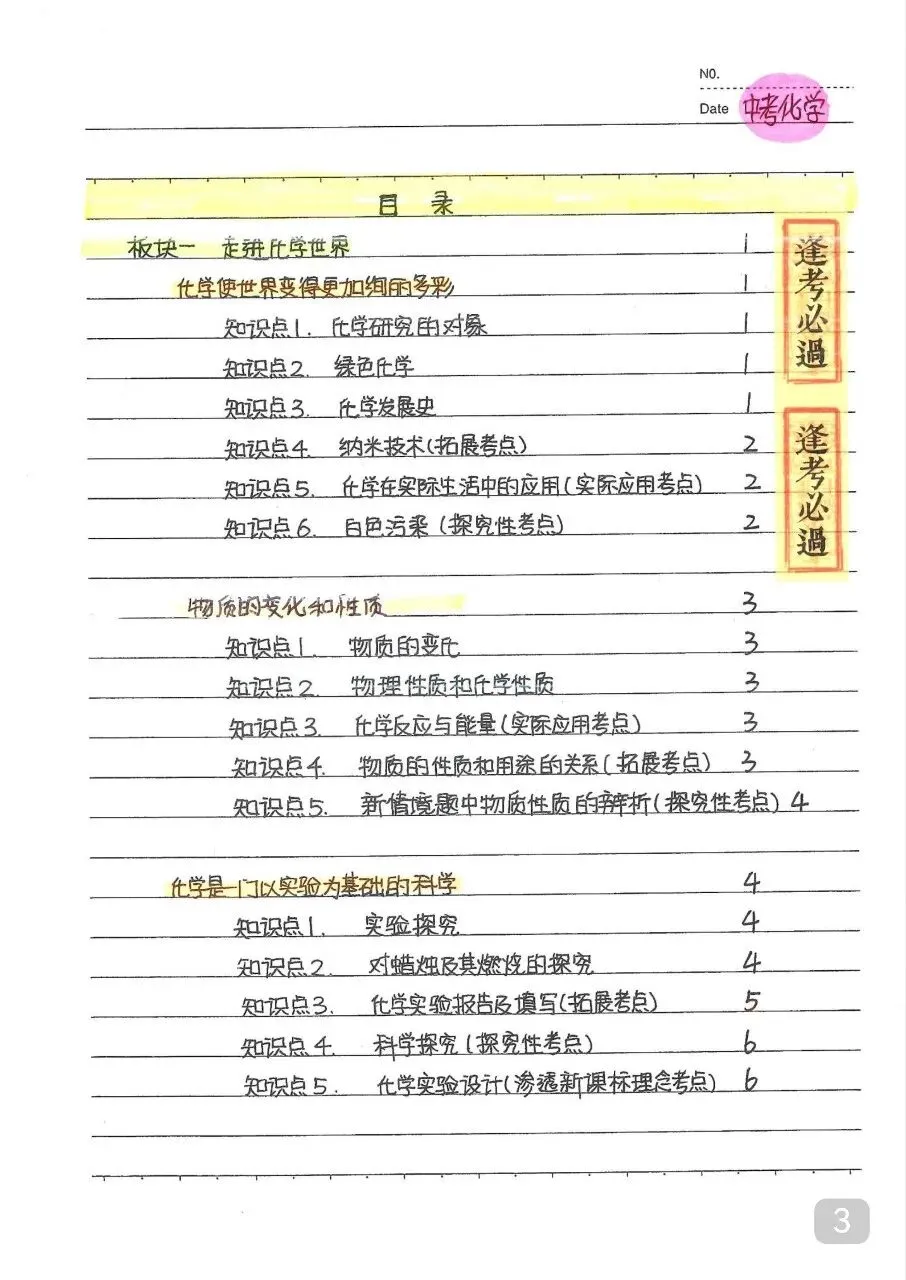 NO.
Date 中考化学
目 录
板块一 走进化学世界 1
化学使世界变得更加绚丽多彩 1
知识点1. 化学研究的对象 1
知识点2. 绿色化学 1
知识点3. 化学发展史 1
知识点4. 纳米技术(拓展考点) 2
知识点5. 化学在实际生活中的应用(实际应用考点) 2
知识点6. 白色污染(探究性考点) 2
逢考必過
逢考必過
物质的变化和性质 3
知识点1. 物质的变化 3
知识点2. 物理性质和化学性质 3
知识点3. 化学反应与能量(实际应用考点) 3
知识点4. 物质的性质和用途的关系(拓展考点) 3
知识点5. 新情境题中物质性质的辨析(探究性考点) 4
化学是一门以实验为基础的科学 4
知识点1. 实验探究 4
知识点2. 对蜡烛及其燃烧的探究 4
知识点3. 化学实验报告及填写(拓展考点) 5
知识点4. 科学探究(探究性考点) 6
知识点5. 化学实验设计(渗透新课标理念考点) 6
3